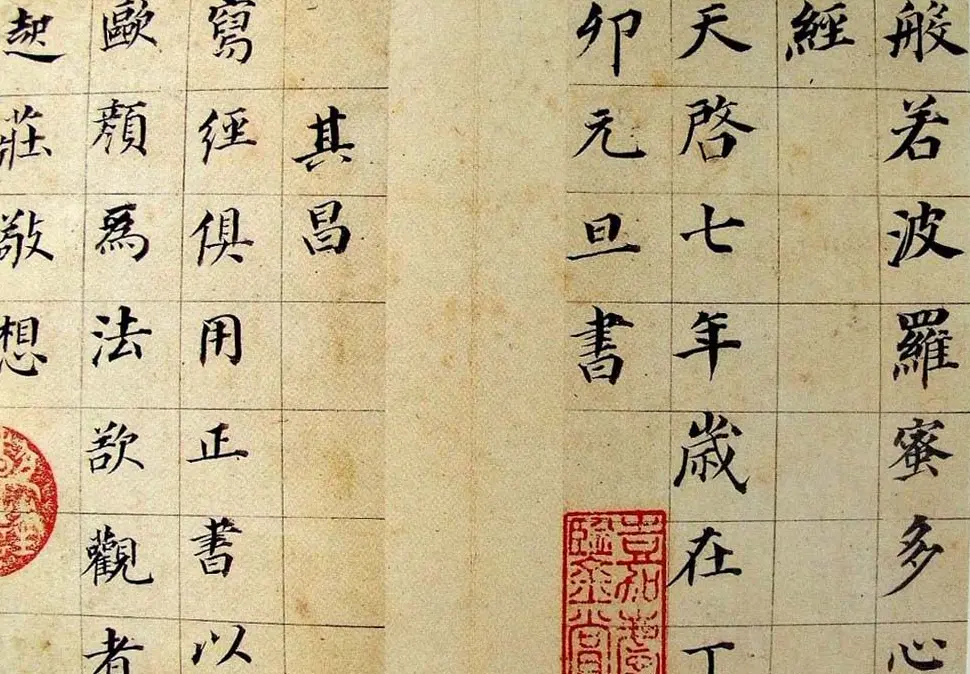 般若波羅蜜多心
經
天啓七年歲在丁
卯元旦書
其昌
寫經俱用正書以
歐顏爲法欲觀者
起莊敬想